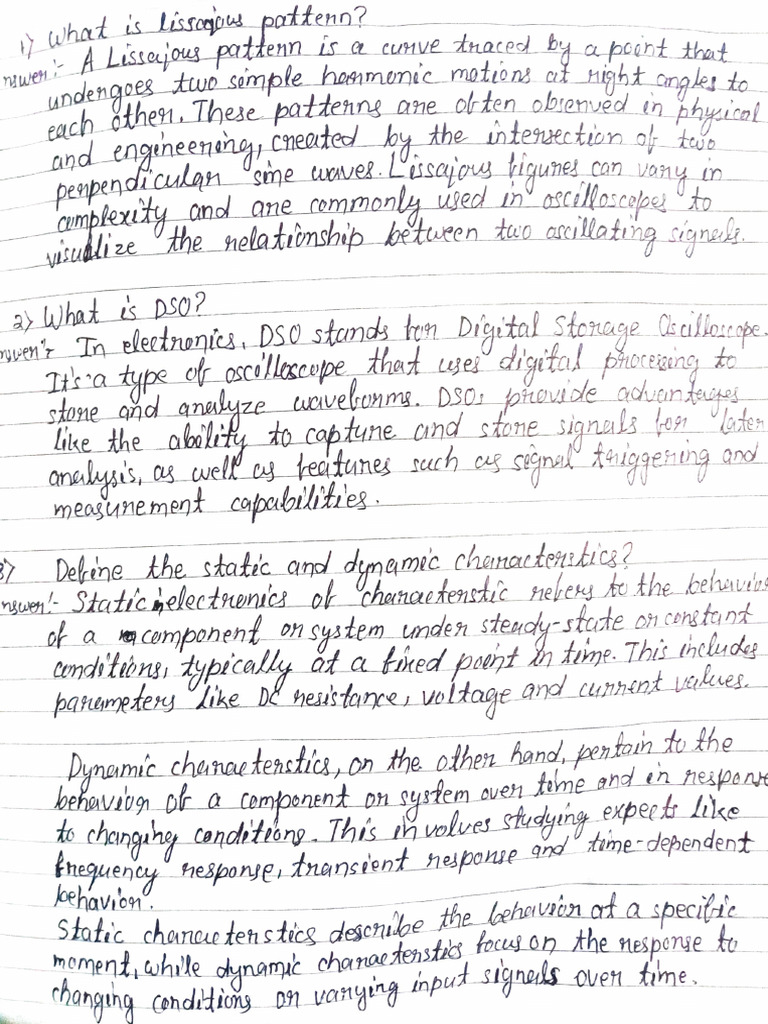 1) What is lissajous pattern?
nswer:- A Lissajous pattern is a curve traced by a point that
undergoes two simple harmonic motions at right angles to
each other. These patterns are often observed in physical
and engineering, created by the intersection of two
perpendicular sine waves. Lissajous figures can vary in
complexity and are commonly used in oscilloscopes to
visualize the relationship between two oscillating signals.
2) What is DSO?
nswer:- In electronics, DSO stands for Digital Storage Oscilloscope.
It's a type of oscilloscope that uses digital processing to
store and analyze waveforms. DSOs provide advantages
like the ability to capture and store signals for later
analysis, as well as features such as signal triggering and
measurement capabilities.
3) Define the static and dynamic characteristics?
nswer:- Static in electronics of characterstic refers to the behavior
of a component or system under steady-state or constant
conditions, typically at a fixed point in time. This includes
parameters like DC resistance, voltage and current values.
Dynamic characterstics, on the other hand, pertain to the
behavior of a component or system over time and in response
to changing conditions. This involves studying expects like
frequency response, transient response and time-dependent
behavior.
Static characterstics describe the behavior at a specific
moment, while dynamic characterstics focus on the response to
changing conditions or varying input signals over time.